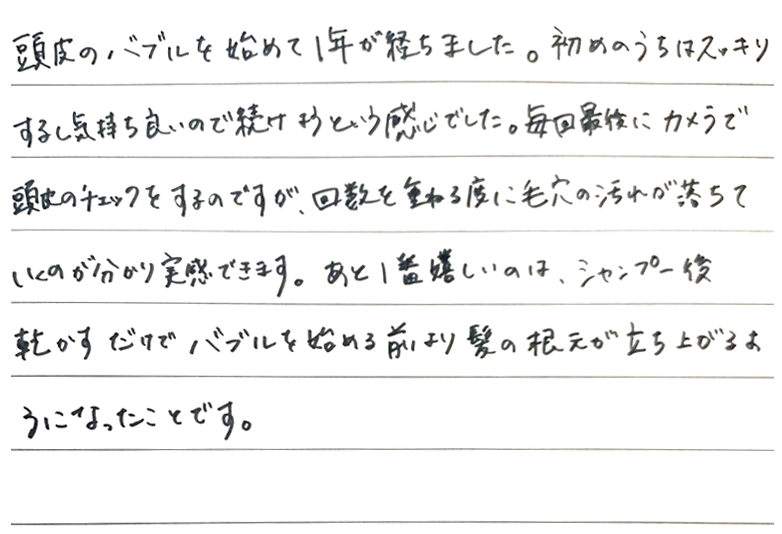 頭皮のバブルを始めて1年が経ちました。初めのうちはスッキリ
するし気持ち良いので続けようという感じでした。毎回最後にカメラで
頭皮のチェックをするのですが、回数を重ねる度に毛穴の汚れが落ちて
いくのが分かり実感できます。あと1番嬉しいのは、シャンプー後
乾かすだけでバブルを始める前より髪の根元が立ち上がるよ
うになったことです。